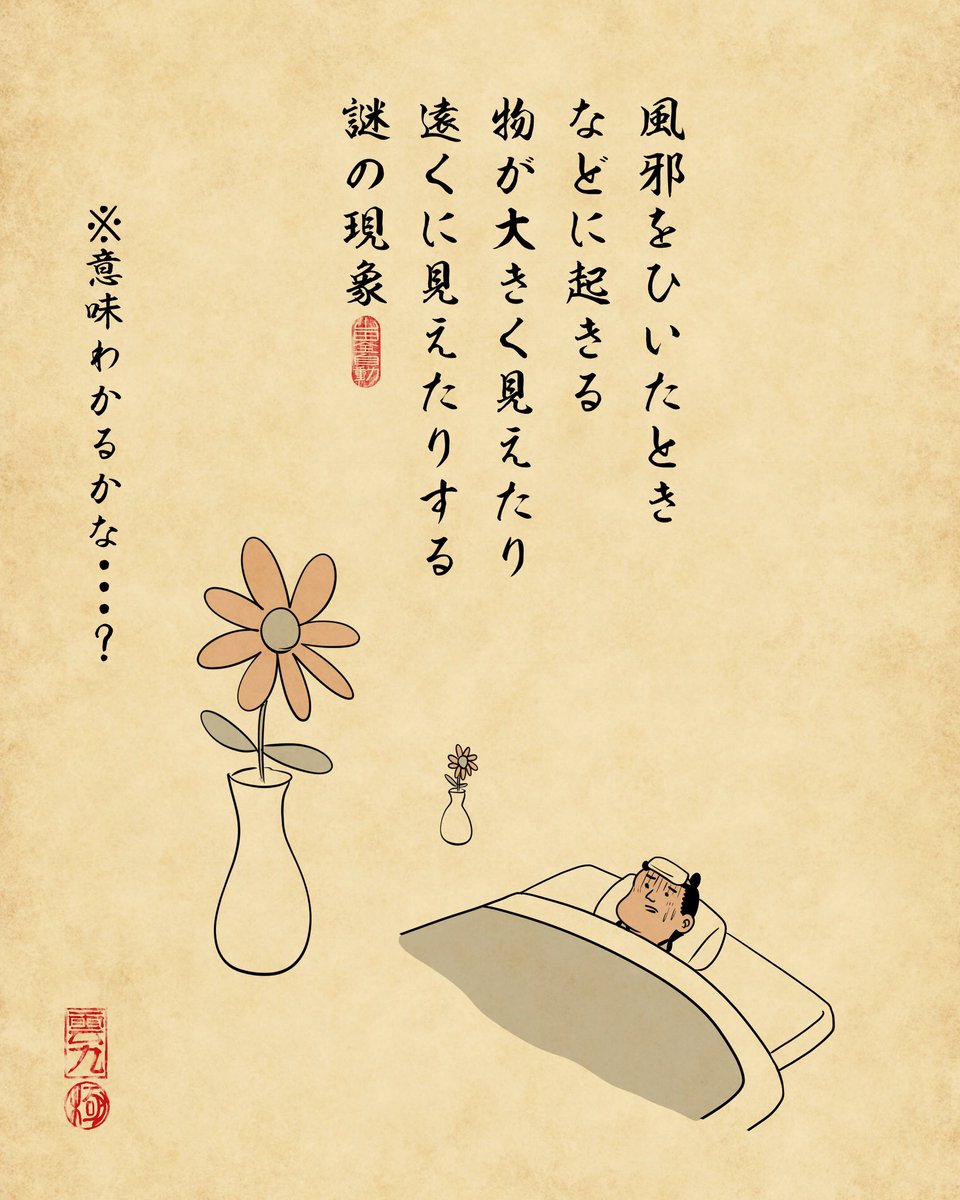 風邪をひいたとき
などに起きる
物が大きく見えたり
遠くに見えたりする
謎の現象
※意味わかるかな・・・?